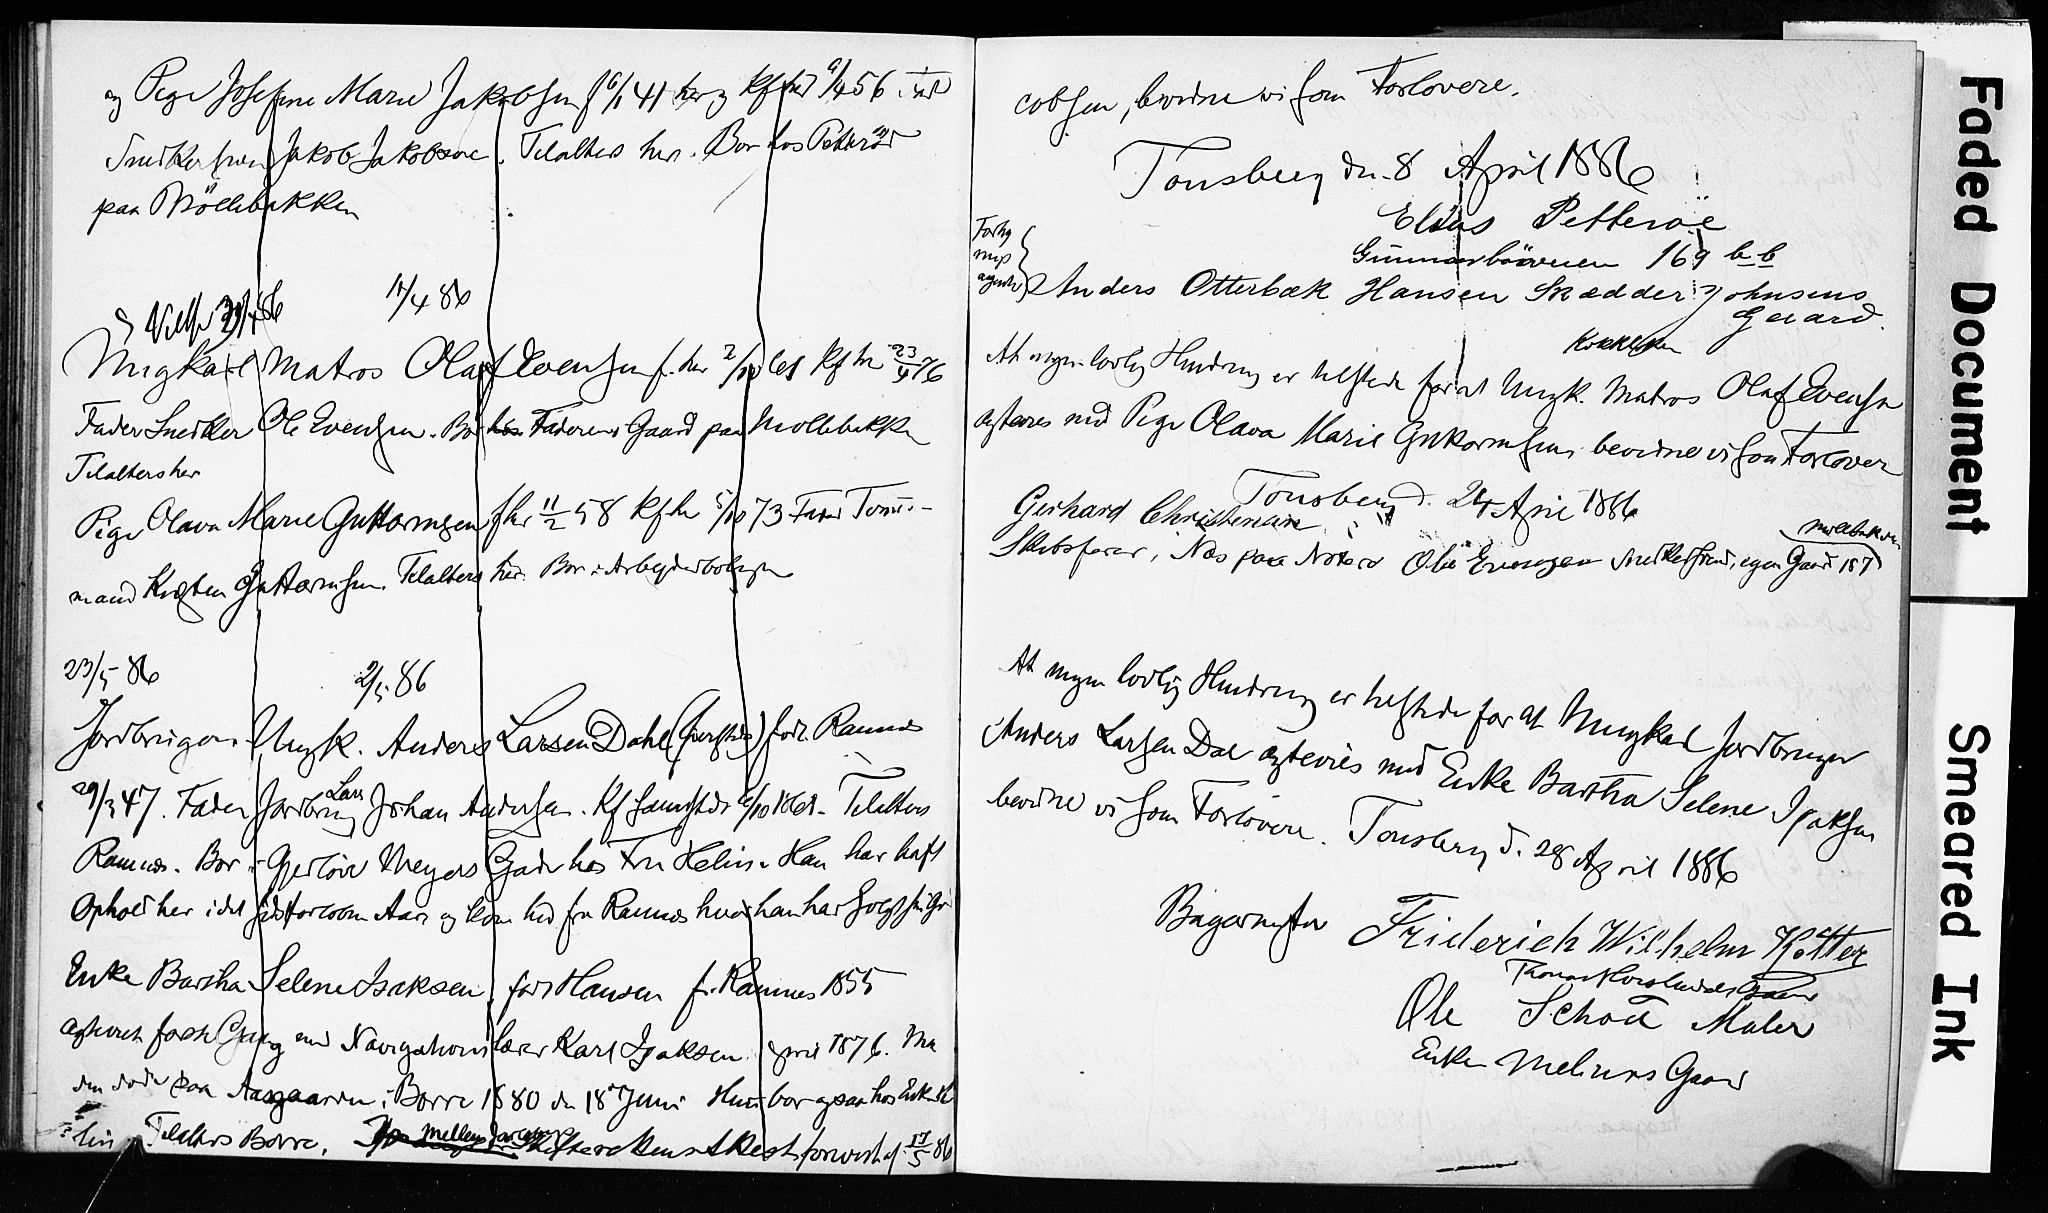 og Pige Josefine Marie Jakobsen f 6/1 41 her og kf her 9/4 56 Fad
Snedkersven Jakob Jakobsen. Tilalters her. Bor hos Petterøe
paa Möllebakken
11/4 86
Ungkarl Matros Olaf Evensen f. her 2/10 61 kf her 23/4 76
Fader Snedker Ole Evensen. Bor hos Faderens Gaard paa Möllebakken
Tilalters her
Pige Olava Marie Guttormsen f her 11/2 58 kf her 5/10 73 Fader Tømmer-
mand Guttormsen. Tilalters her. Bor i Arbeiderboligen
23/5 86
2/5 86
Jordbruger Ungk. Anders Larsen Dahl født Ramnes
29/3 47. Fader Jordbrug Lars Johan Andersen. Kf sammesteds 1861. Tilalters
Ramnes. Bor i Meyers Gade hos Fru Helin. Han har haft
Ophold her i det sidst forløbne Aar og kom hid fra Ramnes hvor han har
Enke Bartha Selene Isaksen, født Hansen f. Ramnes 1855
ægteviet første Gang med Navigationslærer Karl Isaksen 1876. Ma
den døde paa Aasgaarden i Borre 1880 den 18de Juni Hun bor ogsaa hos Enke He
lin Tilalters Borre. Skifterettens Attest forevist af 17/5 86
cobsen, bevidne vi som Forlovere.
Tonsberg den 8 April 1886
Elias Petterøe
Gunnarsbøveien 169 b b
Anders Otterbæk Hansen Skrædder Johnsens
Gaard.
At ingen lovlig Hindring er tilstede for at Ungk. Matros Olaf Evensen
ægtevies med Pige Olava Marie Guttormsen, bevidne vi som Forlover
Tonsberg d. 24 April 1886
Gerhard Christensen
Skibsfører, Næs paa Nøterø Ole Evensen Snedkersvend, egen Gaard 187
Møllebakken
At ingen lovlig Hindring er tilstede for at Ungkarl Jordbruger
Anders Larsen Dal ægtevies med Enke Bartha Selene Isaksen
bevidne vi som Forlovere. Tonsberg d. 28 April 1886
Bagermester Friderich Wilhelm Kötter
Ole Schou Maler
Enken Melins Gaard
Faded Document
Smeared Ink